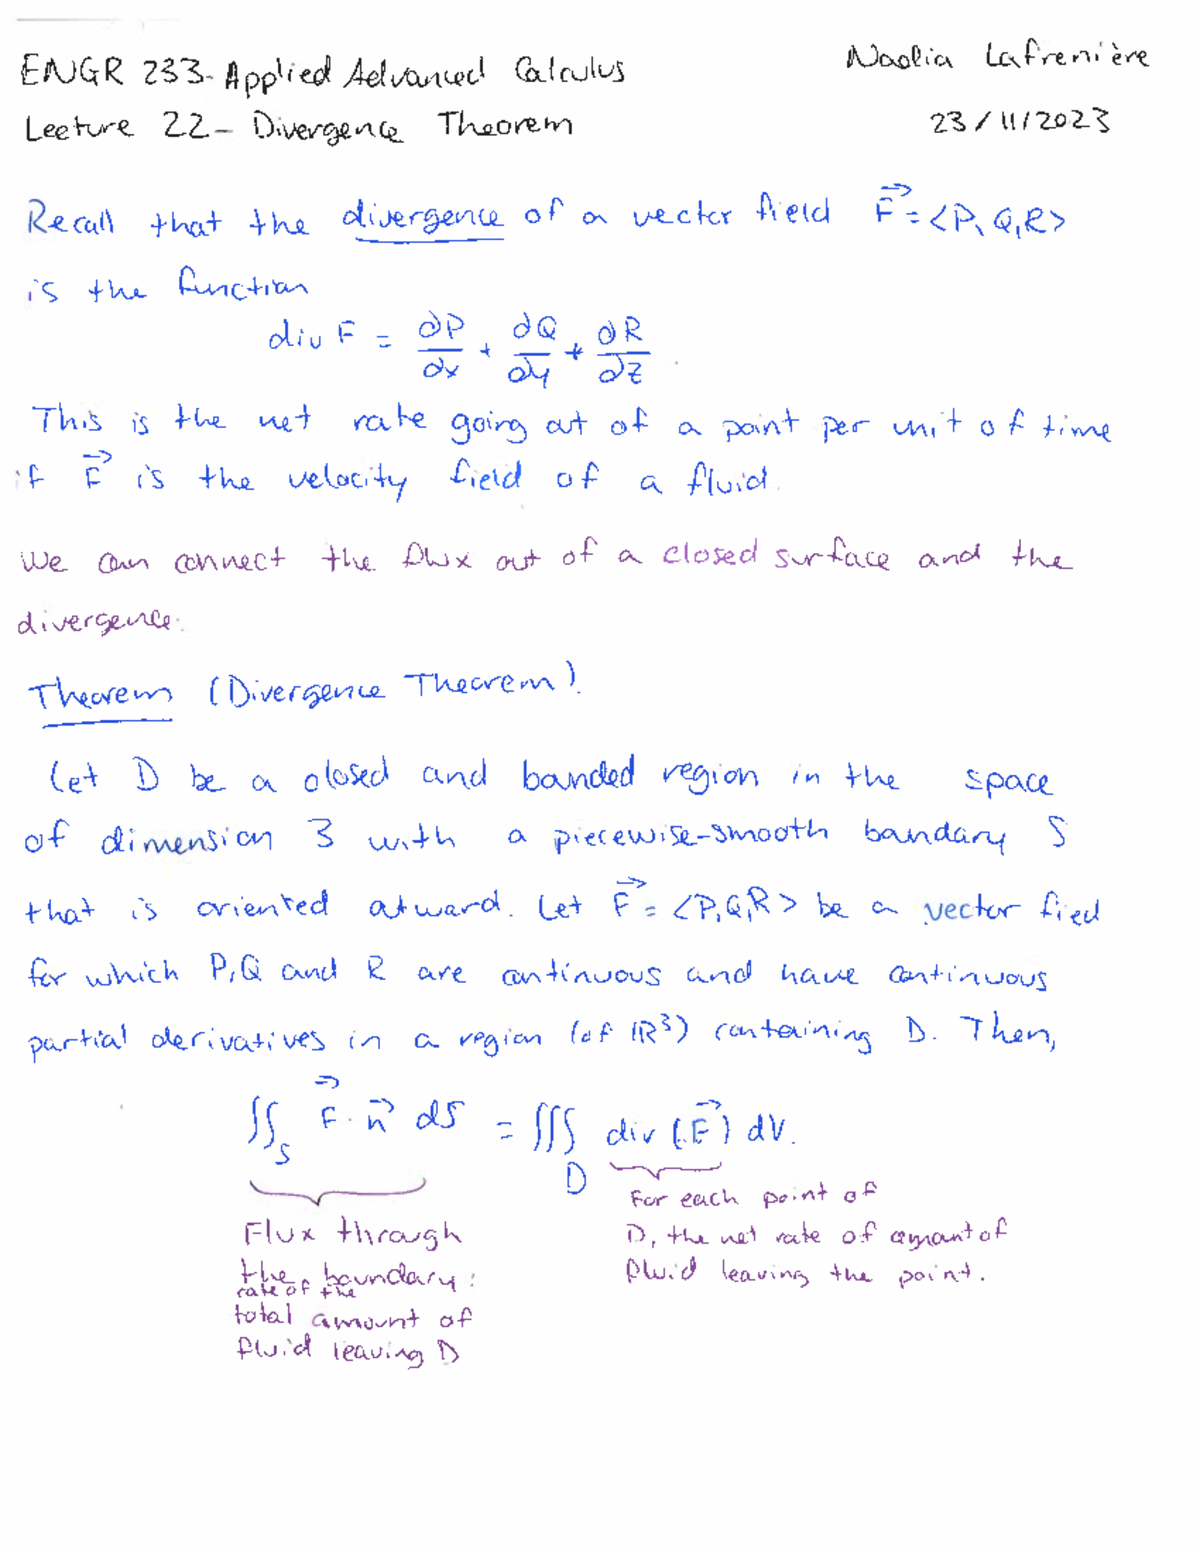 ENGR 233- Applied Advanced Calculus
Nadia Lafrenière
Lecture 22- Divergence Theorem
23/11/2023
Recall that the divergence of a vector field F⃗ = <P, Q, R>
is the function
div F = ∂P/∂x + ∂Q/∂y + ∂R/∂z.
This is the net rate going out of a point per unit of time
if F⃗ is the velocity field of a fluid.
We can connect the flux out of a closed surface and the
divergence:
Theorem (Divergence Theorem).
Let D be a closed and bounded region in the space
of dimension 3 with a piecewise-smooth boundary S
that is oriented outward. Let F⃗ = <P, Q, R> be a vector fied
for which P, Q and R are continuous and have continuous
partial derivatives in a region (of ℝ³) containing D. Then,
∬_S F⃗ · n⃗ dS = ∭_D div (F⃗) dV.
Flux through
the boundary:
rate of the
total amount of
fluid leaving D
For each point of
D, the net rate of amount of
fluid leaving the point.